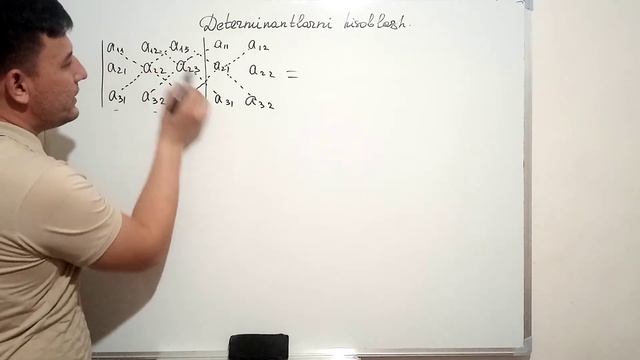 Determinantlarni hisoblash.
a₁₁ a₁₂ a₁₃ | a₁₁ a₁₂
| a₂₁ a₂₂ a₂₃ | a₂₁ a₂₂ =
a₃₁ a₃₂ | a₃₁ a₃₂